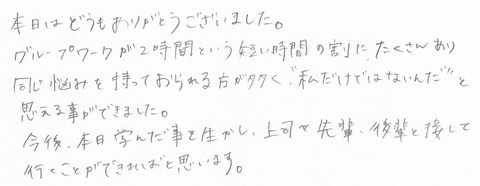 本日はどうもありがとうございました。
グループワークが2時間という短い時間の割に、たくさんあり
同じ悩みを持っておられる方が多く、“私だけではないんだ”と
思える事ができました。
今後、本日学んだ事を生かし、上司や先輩、後輩と接して
行くことができればと思います。